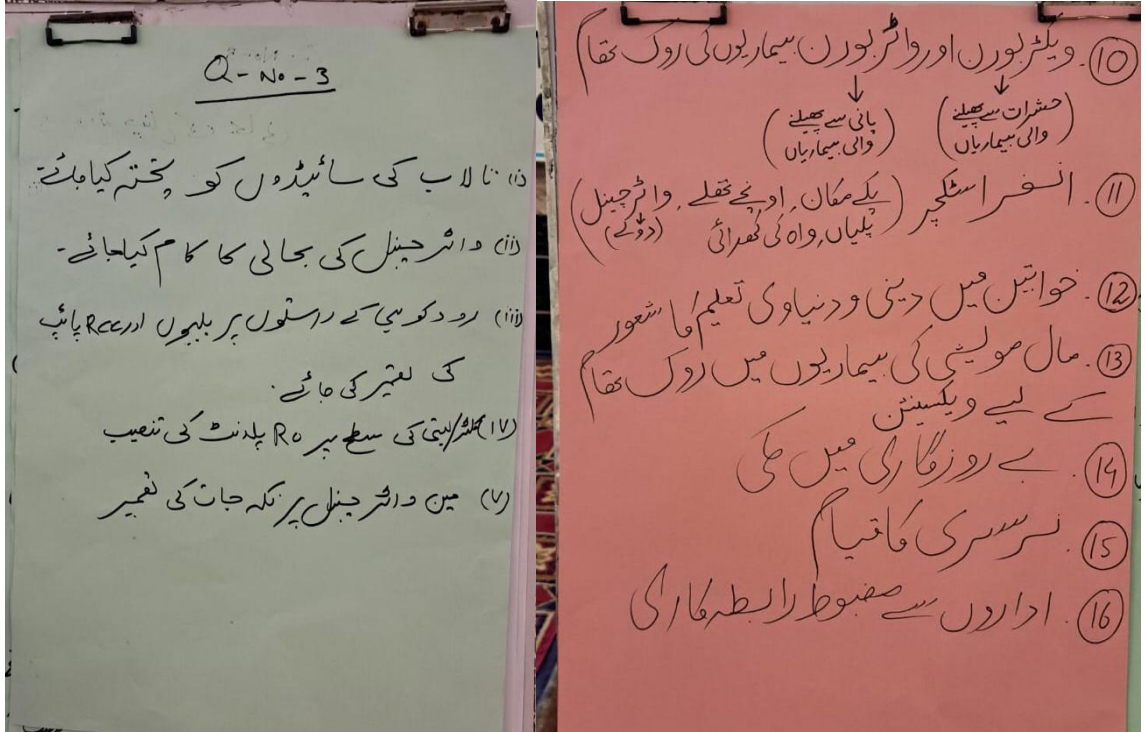 Q - No - 3
(i) تالاب کی سائیڈوں کو پختہ کیا جائے۔
(ii) واٹر چینل کی بحالی کا کام کیا جائے۔
(iii) رودکوہی کے راستوں پر پلیوں اور RCC پائپ
کی تعمیر کی جائے۔
(iv) کلسٹر/بستی کی سطح پر RO پلانٹ کی تنصیب
(v) مین واٹر چینل پر نکہ جات کی تعمیر
10. ویکٹر بورن اور واٹر بورن بیماریوں کی روک تھام
↓ ↓
(حشرات سے پھیلنے والی بیماریاں) (پانی سے پھیلنے والی بیماریاں)
11. انفراسٹکچر (پکے مکان, اونچے تھلے, واٹر چینل
پلیاں, واہ کی کھدائی)
12. خواتین میں دینی و دنیاوی تعلیم کا شعور
13. مال مویشی کی بیماریوں میں روک تھام
کے لیے ویکسینشن
14. بے روزگاری میں کمی
15. نرسری کا قیام
16. اداروں سے مضبوط رابطہ کاری